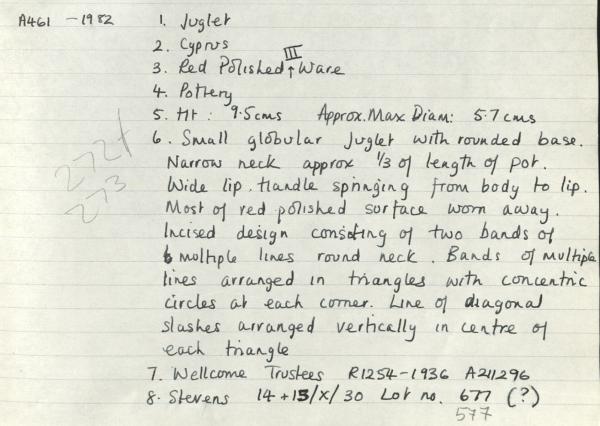 A461 - 1982 1. Juglet
2. Cyprus
3. Red Polished III Ware
4. Pottery
5. Ht: 9.5cms Approx. Max Diam: 5.7 cms
6. Small globular Juglet with rounded base.
Narrow neck approx 1/3 of length of pot.
Wide lip. Handle springing from body to lip.
Most of red polished surface worn away.
Incised design consisting of two bands of
multiple lines round neck. Bands of multiple
lines arranged in triangles with concentric
circles at each corner. Line of diagonal
slashes arranged vertically in centre of
each triangle
7. Wellcome Trustees R1254-1936 A211296
8. Stevens 14+15/X/30 Lot no. 677 (?)
577
273